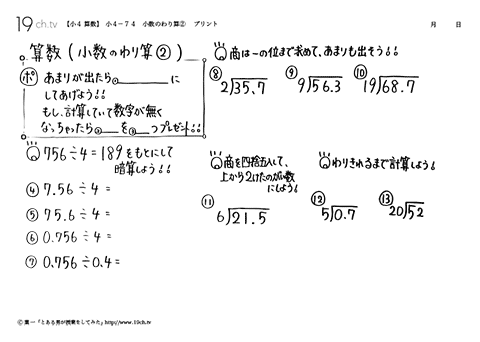 19ch.tv 【小4 算数】 小4-74 小数のわり算② プリント 月 日
算数 (小数のわり算②)
ポ あまりが出たら⓪______に
してあげよう!!
もし、計算していて数字が無く
なっちゃったら⓪____を⓪__つプレゼント!!
756÷4=189をもとにして
暗算しよう!!
④ 7.56÷4=
⑤ 75.6÷4=
⑥ 0.756÷4=
⑦ 0.756÷0.4=
商は一の位まで求めて、あまりも出そう!!
⑧ 2)35.7 ⑨ 9)56.3 ⑩ 19)68.7
商を四捨五入して、
上から2けたのがい数
にしよう!
⑪ 6)21.5
わりきれるまで計算しよう!
⑫ 5)0.7 ⑬ 20)52
Ⓒ 葉一「とある男が授業をしてみた」 http://www.19ch.tv